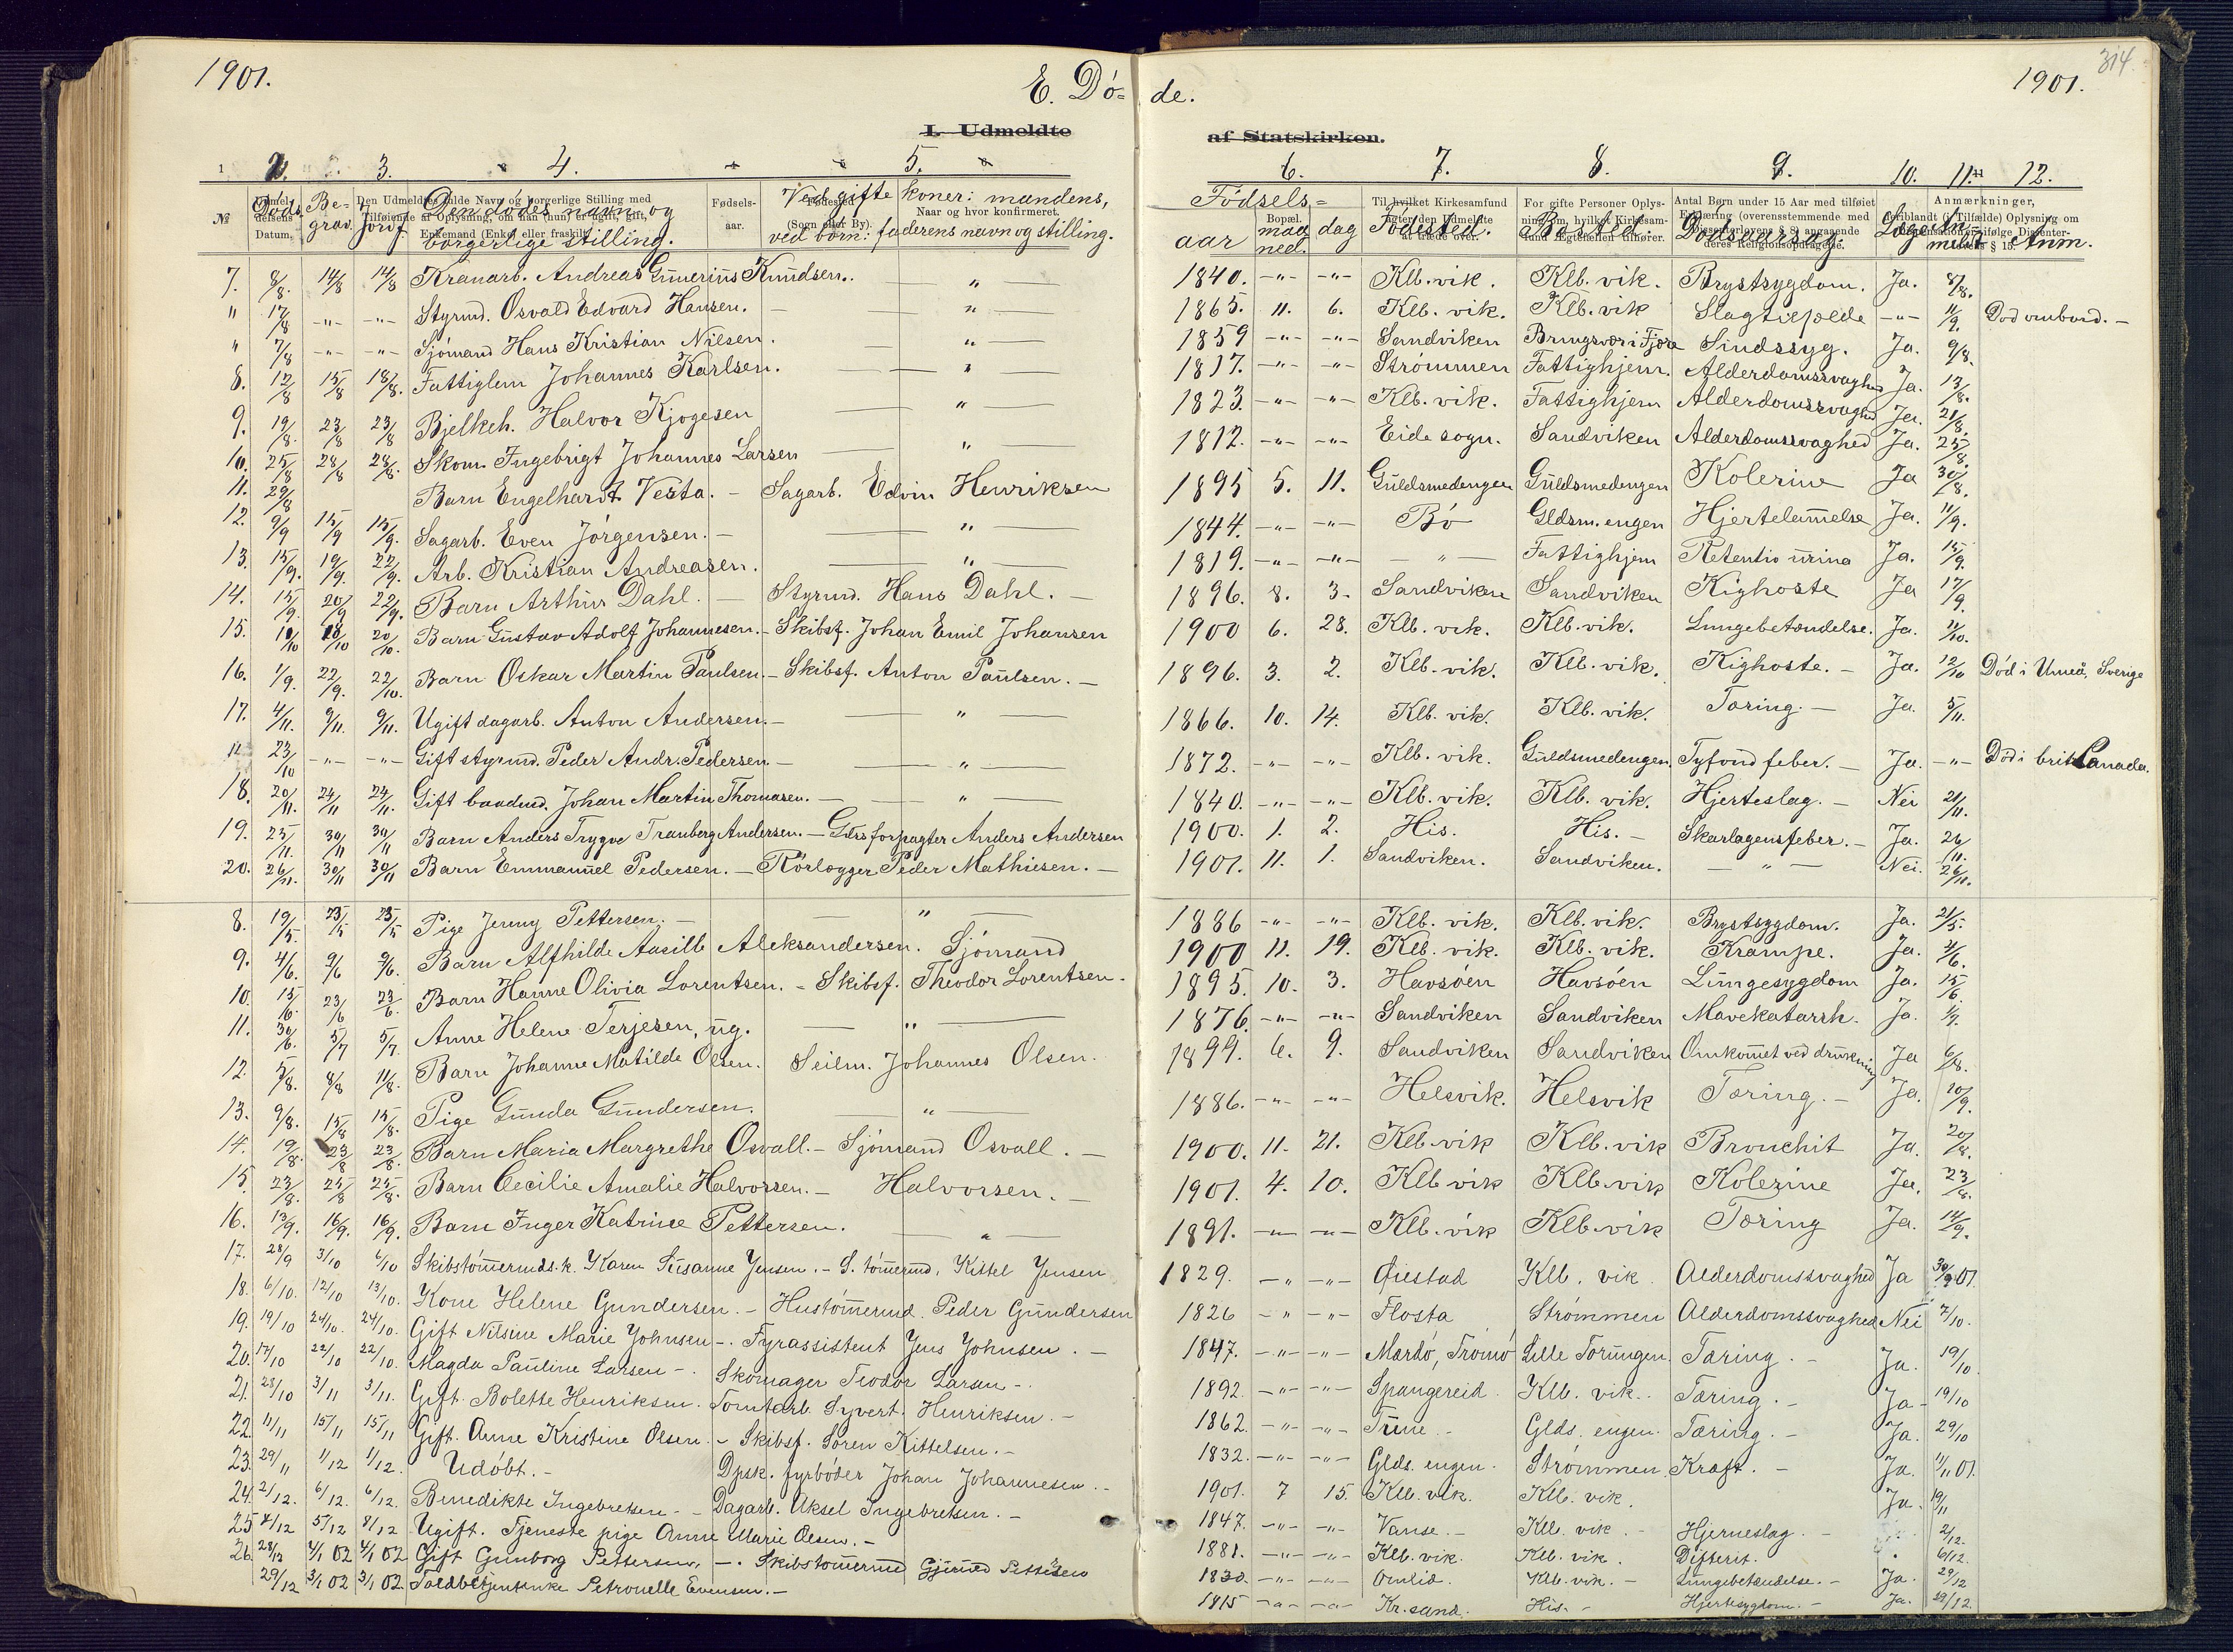 1901. E. Dö= de. 1901. 314.
I. Udmeldte af Statskirken.
1 2. 3. 4. 5. 6. 7. 8. 9. 10. 11. 12.
№ Døds Datum. Be-grav. Jordf Den dødes navn og borgerlige stilling. Ved gifte koner: mandens, ved börn: faderens navn og stilling. Födsels= aar maaned. dag Födested. Bosted. Dodsaarsag. Læge Anmeldt Anm.
7. 8/8. 14/8 14/8 Kranarb. Andreas Gunerius Knudsen. — " — 1840. -"- -"- Klb. vik. Klb. vik. Brystsygdom. Ja. 8/8.
" 17/8 -"- -"- Styrmd. Osvald Edvard Hansen. — " — 1865. 11. 6. Klb. vik. Klb. vik Slagtilfælde -"- 11/9. Död ombord. -
" 7/8 -"- -"- Sjömand Hans Kristian Nilsen. — " — 1859 -"- -"- Sandviken Bringsvær i Fjære Sindssyg. Ja. 9/8.
8. 12/8 15/8 18/8. Fattiglem Johannes Karlsen. — " — 1817. -"- -"- Strömmen Fattighjem. Alderdomssvaghed Ja. 13/8.
9. 19/8. 23/8 23/8 Bjelkeh. Halvor Kjögesen — " — 1823. -"- -"- Klb. vik. Fattighjem Alderdomssvaghed Ja. 21/8.
10. 25/8 28/8 28/8. Skom. Ingebrigt Johannes Larsen — " — 1812. -"- -"- Eide sogn. Sandviken Alderdomssvaghed Ja. 25/8.
11. 29/8 Barn Engelhardt Vesta. - Sagarb. Edvin Henriksen 1895 5. 11. Guldsmedengen Guldsmedengen Kolerine Ja 30/8.
12. 9/9 15/9 15/9. Sagarb. Even Jörgensen. - — " — 1844. -"- -"- Bö Gldsm. engen Hjertelammelse Ja. 11/9.
13. 15/9. 19/9. 22/9. Arb. Kristian Andreasen. — " — 1819. -"- -"- — " — Fattighjem Retentio urina Ja. 15/9.
14. 15/9. 20/9 22/9. Barn Arthur Dahl. - Styrmd. Hans Dahl. - 1896. 8. 3. Sandviken Sandviken Kighoste Ja 17/9.
15. 10/10 18/10 20/10. Barn Gustav Adolf Johannesen. - Skibsf. Johan Emil Johansen 1900 6. 28. Klb. vik. Klb. vik. Lungebetændelse. Ja. 11/10.
16. 1/9. 22/9. 22/10. Barn Oskar Martin Paulsen. - Skibsf. Anton Paulsen. - 1896. 3. 2. Klb. vik. Klb. vik. Kighoste. - Ja. 12/10 Död i Umeå, Sverige
17. 4/11. 9/11. 9/11. Ugift dagarb. Anton Andersen. - — " — 1866. 10. 14. Klb. vik. Klb. vik. Tæring. - Ja. 5/11.
" 23/10 -"- -"- Gift styrmd. Peder Andr. Pedersen - — " — 1872. -"- -"- Klb. vik. Guldsmedengen. Tyfoid feber. - Ja. -"- Död i britt Canada.
18. 20/11. 24/11 24/11. Gift baadmd. Johan Martin Thomasen. - — " — 1840. -"- -"- Klb. vik. Klb. vik. Hjerteslag. - Nei 21/11.
19. 25/11. 30/11 30/11 Barn Anders Trygve Tranberg Andersen. - Gdrsforpagter Anders Andersen 1900. 1. 2. His. His. - Skarlagensfeber. - Ja. 26/11.
20. 26/11. 30/11 30/11 Barn Emmanuel Pedersen. - Rörlægger Peder Mathiesen. - 1901. 11. 1. Sandviken. Sandviken. — " — Nei. 26/11.
8. 19/5. 25/5 25/5 Pige Jenny Pettersen. - — " — 1886 -"- -"- Klb. vik. Klb. vik. Brystsygdom. Ja. 21/5.
9. 4/6. 9/6 9/6. Barn Alfhilde Aasille Aleksandersen. Sjömand 1900 11. 19. Klb. vik. Klb. vik. Krampe. Ja. 4/6.
10. 15/6. 23/6 23/6. Barn Hanne Olivia Lorentsen. - Skibsf. Theodor Lorentsen. 1895. 10. 3. Havsöen Havsöen Lungesygdom Ja. 15/6.
11. 30/6. 5/7 5/7. Anne Helene Terjesen, ug. — " — 1876. -"- -"- Sandviken Sandviken Mavekatarrh. Ja. 1/7.
12. 5/8. 8/8 11/8. Barn Johanne Matilde Olsen. Seilm. Johannes Olsen. 1899. 6. 9. Sandviken Sandviken Omkommet ved drukning Ja 6/8.
13. 9/8. 15/8 15/8. Pige Gunda Gundersen. — " — 1886. -"- -"- Helsvik. Helsvik Tæring. - Ja. 10/9.
14. 19/8. 23/8 23/8. Barn Maria Margrethe Osvall. - Sjömand Osvall. - 1900. 11. 21. Klb. vik Klb. vik Bronchit Ja. 20/8.
15. 23/8. 25/8 25/8. Barn Cecilie Amalie Halvorsen. - Halvorsen. - 1901. 4. 10. Klb vik Klb. vik Kolerine Ja. 23/8.
16. 13/9. 16/9. 16/9. Barn Inger Katrine Pettersen. — " — 1891. -"- -"- Klb. vik Klb. vik Tæring Ja. 14/9.
17. 28/9 3/10 6/10 Skibstömermds. k. Karen Susanne Jensen. - S. tömermd. Kittel Jensen 1829. -"- -"- Øiestad Klb. vik Alderdomssvaghed Ja 30/9 01.
18. 6/10. 12/10 13/10. Kone Helene Gundersen. - Hustömermd. Peder Gundersen 1826 -"- -"- Flosta Strömmen Alderdomssvaghed Nei 7/10.
19. 19/10 24/10. 24/10. Gift Nilsine Marie Johnsen -. Fyrassistent Jens Johnsen. - 1847. -"- -"- Mærdö, Tromö Lille Torungen. Tæring. - Ja. 19/10.
20. 17/10 22/10 22/10. Magda Pauline Larsen - Skomager Teodor Larsen -. 1892. -"- -"- Spangereid. Klb. vik. Tæring. - Ja - 19/10
21. 28/10 3/11 3/11. Gift. Bolette Henriksen. Tomtarb. Syvert. Henriksen. - 1862. -"- -"- Glds. engen. Tæring. - Ja. 29/10
22. 11/11 15/11 15/11 Gift. Anne Kristine Olsen. - Skibsf. Sören Kittelsen. - 1832. -"- -"- Glds. engen. Strömmen. Kræft. - Ja. 11/11 01.
23. 29/11 1/12 1/12. Udöbt. - Dpsk. fyrböder Johan Johannesen. - 1901. 7 15. Klb. vik. Klb. vik. Ja. 19/11
24. 2/12. 6/12. 6/12. Benedikte Ingebretsen - Dagarb. Aksel Ingebretsen. - 1847. -"- -"- Vanse. - Klb. vik. - Hjerneslag. - 2/12.
25 4/12 5/12 8/12 Ugift. Tjeneste pige Anne Marie Olsen. - 1881. -"- -"- Klb. vik. Klb. vik. Difterit. " 6/12.
26. 28/12 4/1 02 4/1 02 Gift Gunborg Pettersen. -. Skibstömermd Pettersen 1830. -"- -"- Omlid. Klb. vik. - Lungebetændelse. - Ja. 29/12
29/12 3/1 02 3/1 02 Toldbetjentenke Petronelle Evensen. - 1815 -"- -"- Kr. sand. His. - Hjertesygdom. - Ja. 29/12.